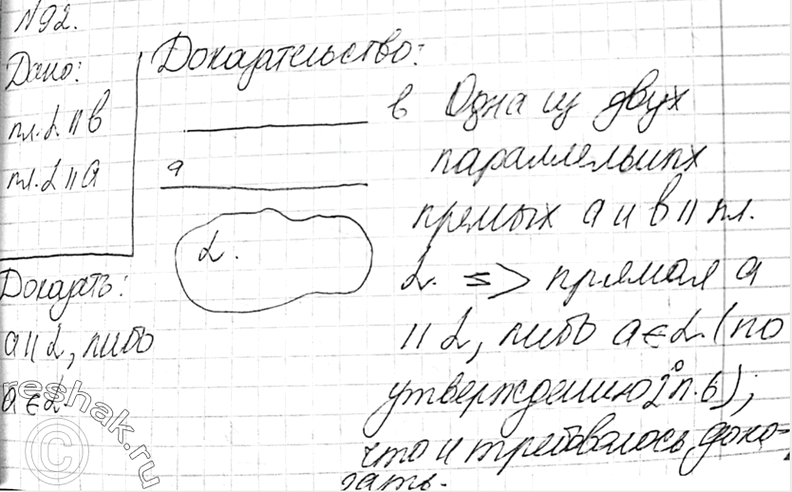 N92.
Дано:
пл. α || b
пл. α || a
Доказать:
a || α, либо
a ∈ α.
Доказательство:
b
a
α.
Одна из двух
параллельных
прямых a и b || пл.
α. => прямая a
|| α, либо a ∈ α. (по
утверждению 2° п. 6);
что и требовалось дока-
зать.
reshak.ru
©